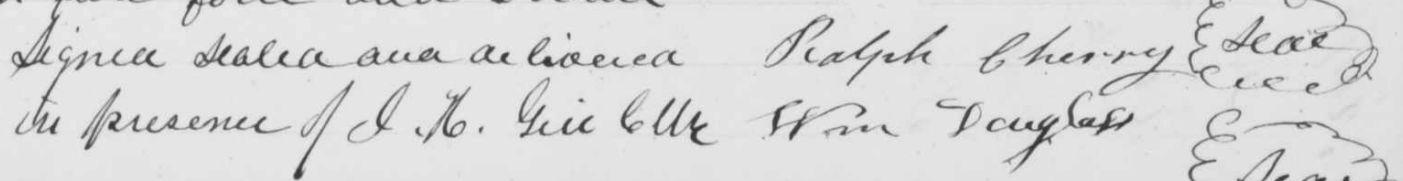 Signed sealed and delivered Ralph Cherry Seal
in presence of J. H. Gill Clk Wm Douglass Seal